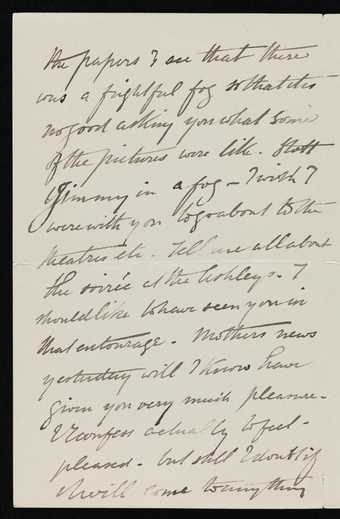 the papers I see that there
was a frightful fog so that it is
no good asking you what some
of the pictures were like.
Jimmy in a fog - I wish I
were with you to go about to the
theatres etc. Tell me all about
the soirée at the Ashleys. I
should like to have seen you in
that entourage. Mothers news
yesterday will I know have
given you very much pleasure.
I confess actually to feel
pleased - but still I doubt if
it will come to anything